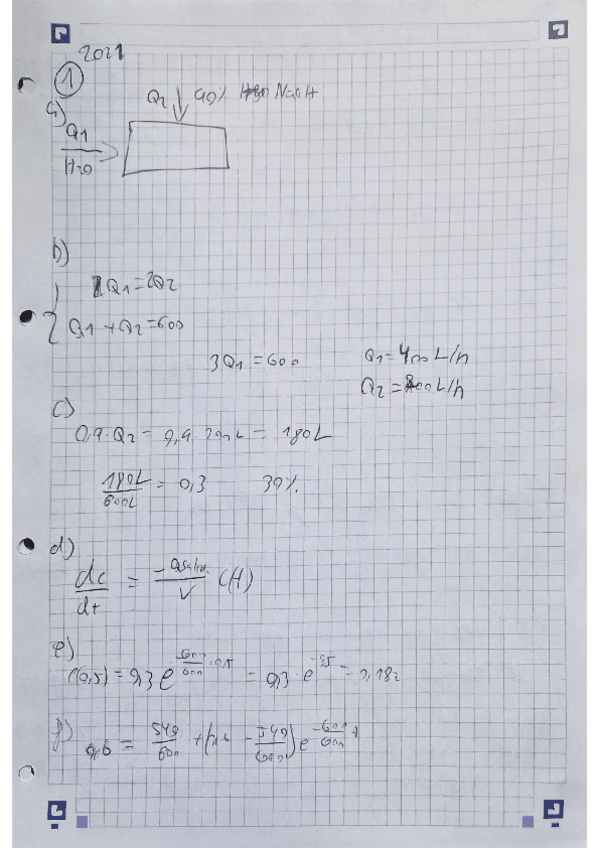 2021
1
a)
Q2 90% NaOH
Q1
H2O
b)
Q1=2Q2
Q1+Q2=600
3Q1=600 Q1=400L/h
Q2=200L/h
c)
0,9·Q2=0,9·200L=180L
180L/600L=0,3 30%
d)
dc/dt = -Qsalida/V C(t)
e)
C(0,5)=0,3 e^(-600/600·0,5) = 0,3·e^-0,5=0,182
f)
0,6 = 540/600 + ( - 540/600) e^(-600/600 t)